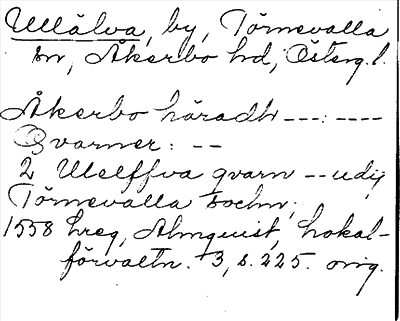 Ullälva, by, Törnevalla
sn, Åkerbo hd, Österg. l.
Åkerbo häradh ---: ----
Qvarner: --
2 Ulelffva qvarn -- udij
Törnevalla sochn;
1558 hreg, Almquist, Lokal-
förvaltn. 3, s. 225. orig.